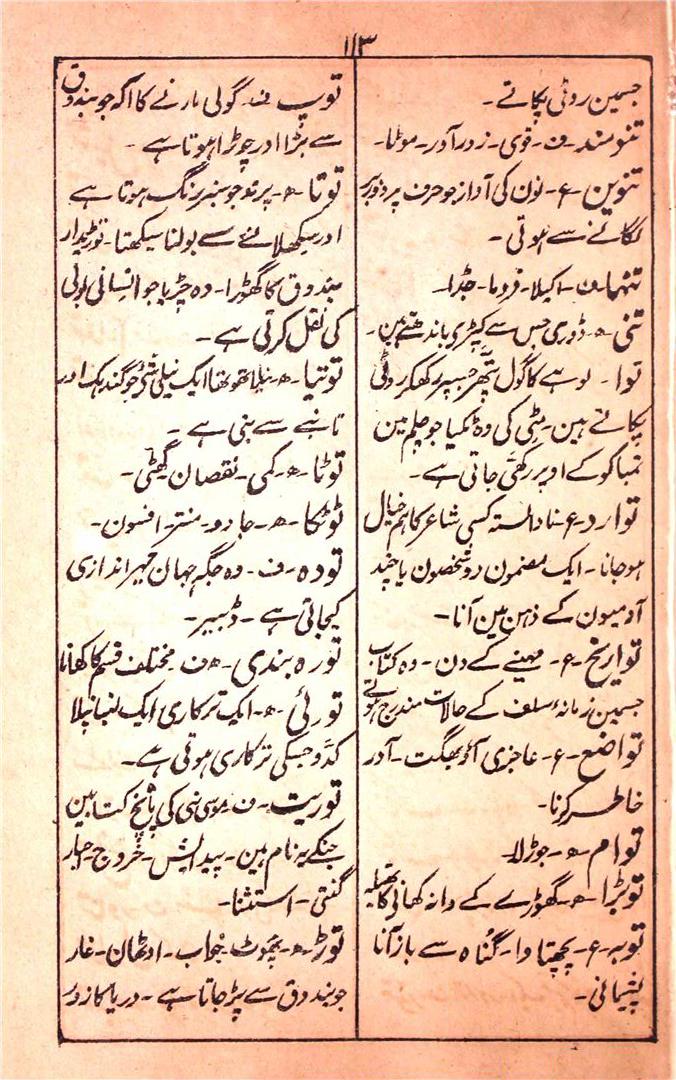 ۱۱۳
جسمین روٹی پکاتے -
تنومند - ف - قوی - زور آور - موٹا -
تنوین - ع - نون کی آواز جو حرف پر دو زبر
لگانے سے ہوتی -
تنہا - ف - اکیلا - فرد - جدا -
تنی - ھ - ڈوری جس سے کپڑی باندھتے ہین -
توا - لوہے کا گول پتھر جسپر رکھکر روٹی
پکاتے ہین - مٹی کی وہ ٹکیا جو چلم مین
تمباکو کے اوپر رکھی جاتی ہے -
توارد - ع - نادانستہ کسی شاعر کا ہم خیال
ہوجانا - ایک مضمون دو شخصون یا چند
آدمیون کے ذہن مین آنا -
تواریخ - ع - مہینے کے دن - وہ کتاب
جسمین زمانہ سلف کے حالات مندرج ہوتے
تواضع - ع - عاجزی آؤ بھگت - آدر
خاطر کرنا -
توام - ھ - جوڑلا -
توبڑا - ھ - گھوڑے کے دانہ کھانے کا تھیلہ
توبہ - ع - پچھتاوا - گناہ سے باز آنا
پشیمانی -
توپ - ف - گولی مارنے کا آلہ جو بندوق
سے بڑا اور چوڑا ہوتا ہے -
توتا - ھ - پرند جو سبز رنگ ہوتا ہے
اور سیکھلانے سے بولنا سیکھتا - توڑیدار
بندوق کا گھوڑا - وہ چڑیا جو انسانی بولی
کی نقل کرتی ہے -
توتیا - ھ - نیلا تھوتھا ایک نیلی شی جو گندھک اور
تانبے سے بنی ہے -
توٹا - ھ - کمی - نقصان گھٹی -
ٹوٹکا - ھ - جادو - منتر - افسون -
تودہ - ف - وہ جگہ جہان تیر اندازی
کیجاتی ہے - ڈھیر -
تورہ بندی - ف - مختلف قسم کا کھانا
تورئی - ھ - ایک ترکاری ایک لنبا پتلا
کدو جسکی ترکاری ہوتی ہے -
توریت - ف - موسی نبی کی پانچ کتابین
جنکے یہ نام ہین - پیدایش - خروج - احبار
گنتی - استثنا -
توڑ - ھ - پھوٹ - جواب - اوٹھان - غار
جو بندوق سے پڑجاتا ہے - دریا کا زور